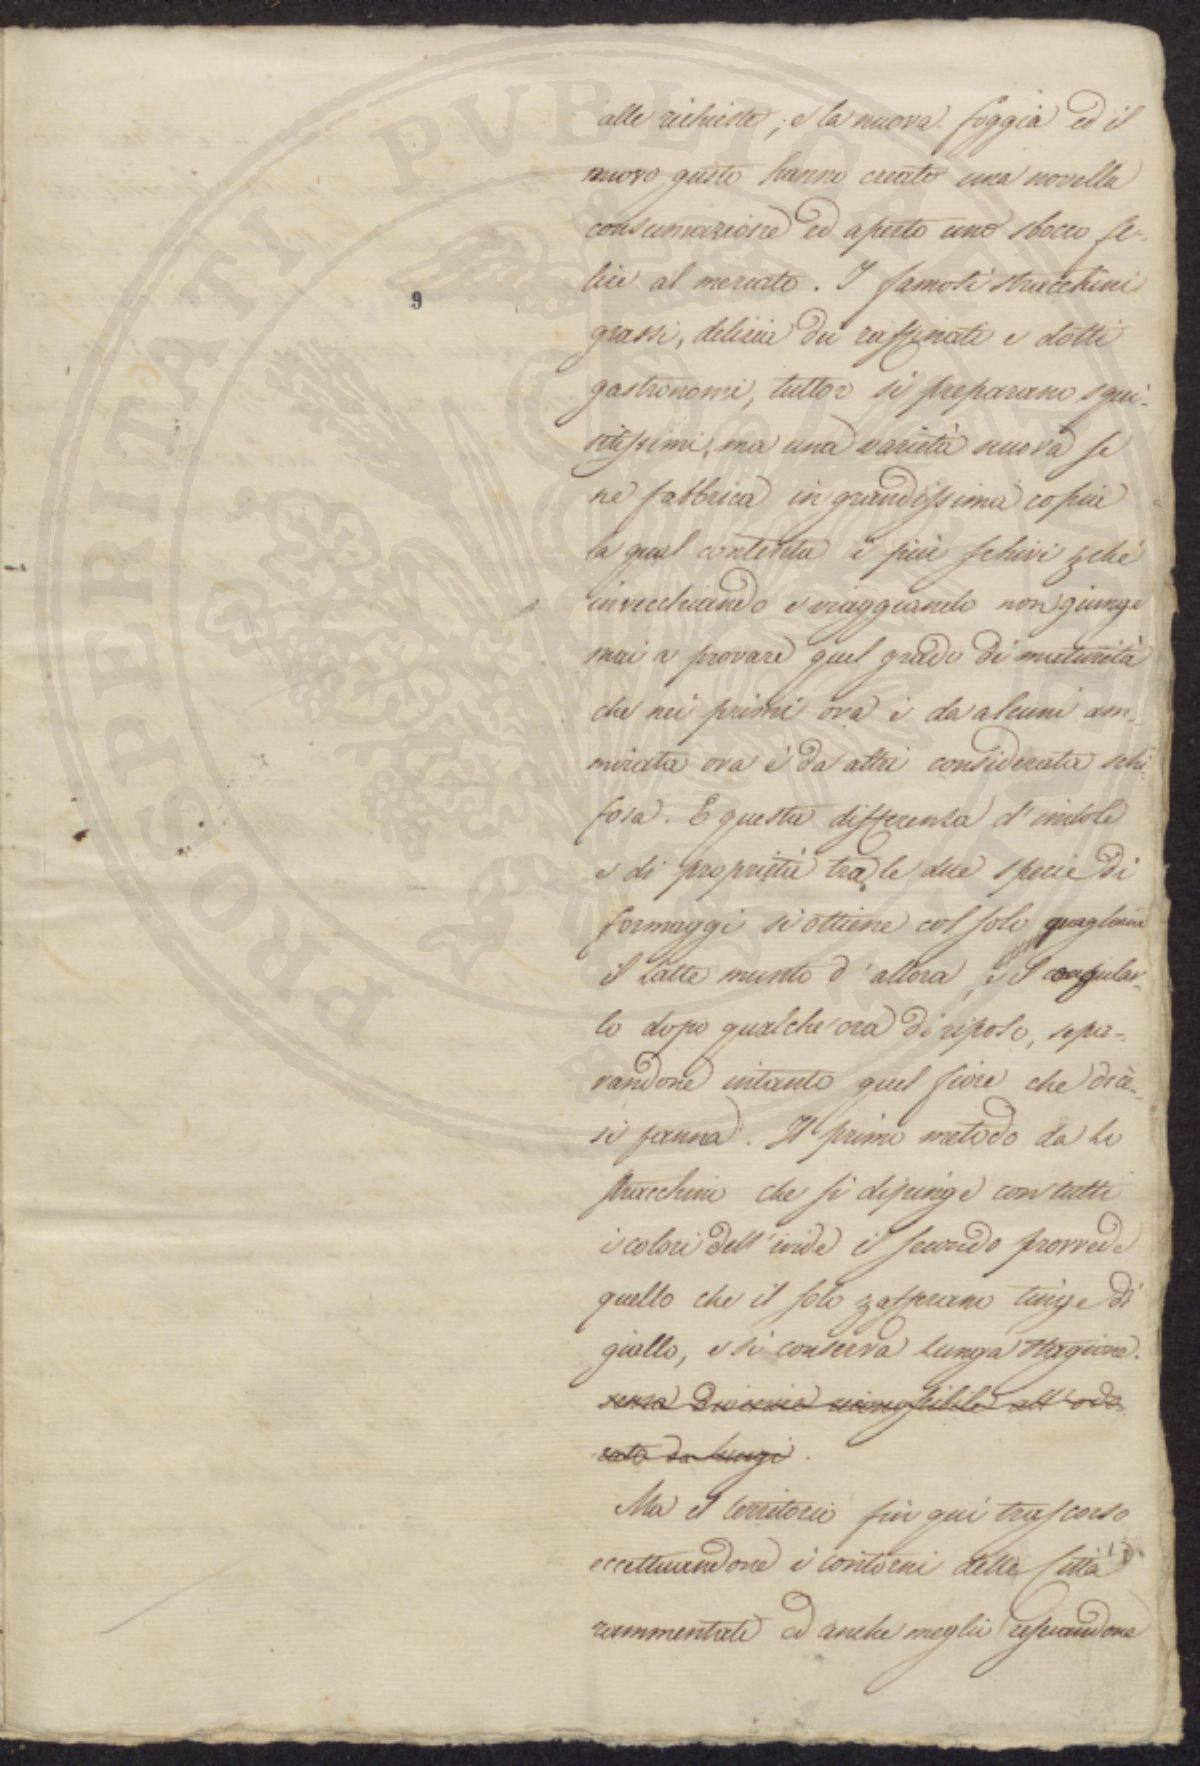 alle richieste; e la nuova foggia ed il
nuovo gusto hanno creato una novella
consumazione ed aperto uno sbocco fe-
lice al mercato. I famosi stracchini
9
grassi, delizia dei raffinati e dotti
gastronomi, tuttor si preparano squi-
sitissimi, ma una varietà nuova se
ne fabbrica in grandissima copia
la qual contenta i più schivi
invecchiando e viaggiando non giunge
mai a provare quel grado di maturità
che nei primi ora è da alcuni am-
mirata ora è da altri considerata schi-
fosa. E questa differenza d'indole
e di proprietà tra le due specie di
formaggi si ottiene col solo quagliare
il latte munto d'allora, e il coagular-
lo dopo qualche ora di riposo, sepa-
randone intanto quel fiore che dice-
si panna. Il primo metodo da lo
stracchino che si dipinge con tutti
i colori dell'iride il secondo provvede
quello che il solo zafferano tinge di
giallo, e si conserva lunga stagione.
senza divenire all'odo
rato da lungi.
Ma il territorio fin qui trascorso
eccettuandone i contorni delle Città
rammentate ed anche meglio
PROSPERITATI PVBLICAE